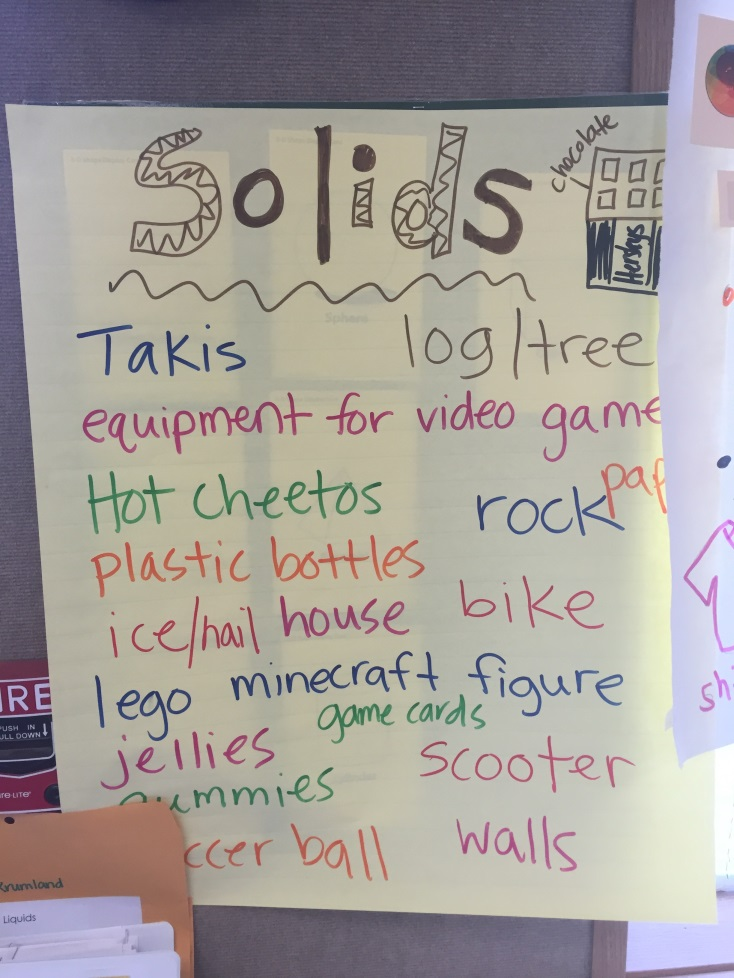 Solids
chocolate
Hershys
Takis log/tree
equipment for video game
Hot cheetos rock pap
plastic bottles
ice/hail house bike
lego minecraft figure
game cards
jellies scooter
gummies
ccer ball walls
shi
IRE
PUSH IN
PULL DOWN
re-LITE
Krumland
Liquids
Sphere